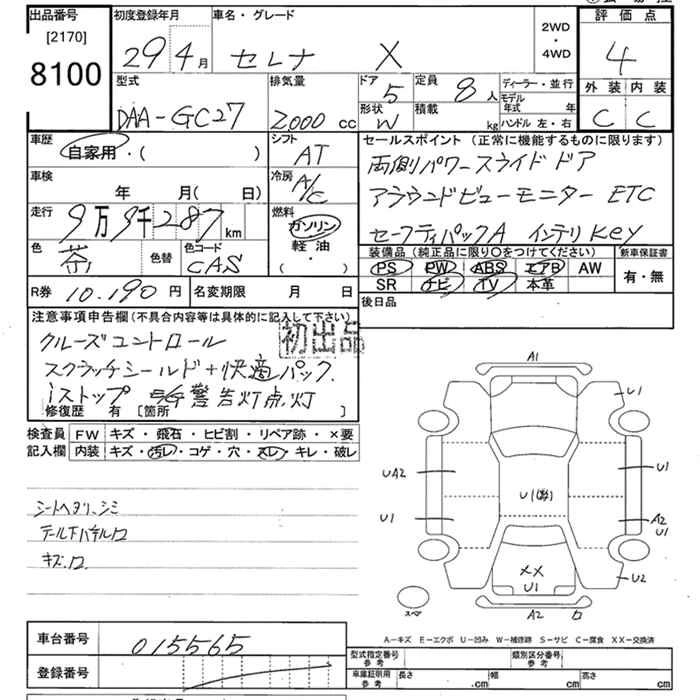 出品番号
[2170]
8100
初度登録年月
29 4月
車名・グレード
セレナ X
2WD
・
4WD
評価点
4
外装 内装
C C
型式
DAA-GC27
排気量
2000 cc
ドア
5
形状
W
定員
8 人
積載
kg
ディーラー・並行
モデル年式 年
ハンドル 左・右
車歴
自家用・( )
シフト
AT
車検
年 月( 日)
冷房
A/C
走行
9万9千287 km
燃料
ガソリン
軽油・
( )
色
茶
色替
色コード
CAS
R券 10.190円
名変期限 月 日
セールスポイント (正常に機能するものに限ります)
両側パワースライドドア
アラウンドビューモニター ETC
セーフティパックA インテリKey
装備品 (純正品に限り○をつけてください)
新車保証書
PS PW ABS エアB AW
SR ナビ TV 本革
有・無
後日品
注意事項申告欄(不具合内容等は具体的に記入して下さい)
初出品
クルーズコントロール
スクラッチシールド+快適パック
iストップ 警告灯点灯
修復歴 有 [箇所 ]
検査員記入欄
FW キズ・飛石・ヒビ割・リペア跡・×要
内装 キズ・汚レ・コゲ・穴・スレ・キレ・破レ
シートヘタリ、シミ
キズ.ワ
A1
U1
UA2
U1
U1
A2
U1
U1
XX
U1
U2
A2
スペア
A-キズ E-エクボ U-凹み W-補修跡 S-サビ C-腐食 XX-交換済
車台番号
015565
登録番号
型式指定番号 参考
類別区分番号 参考
車庫証明用 参考
長さ .cm
幅 cm
高さ cm